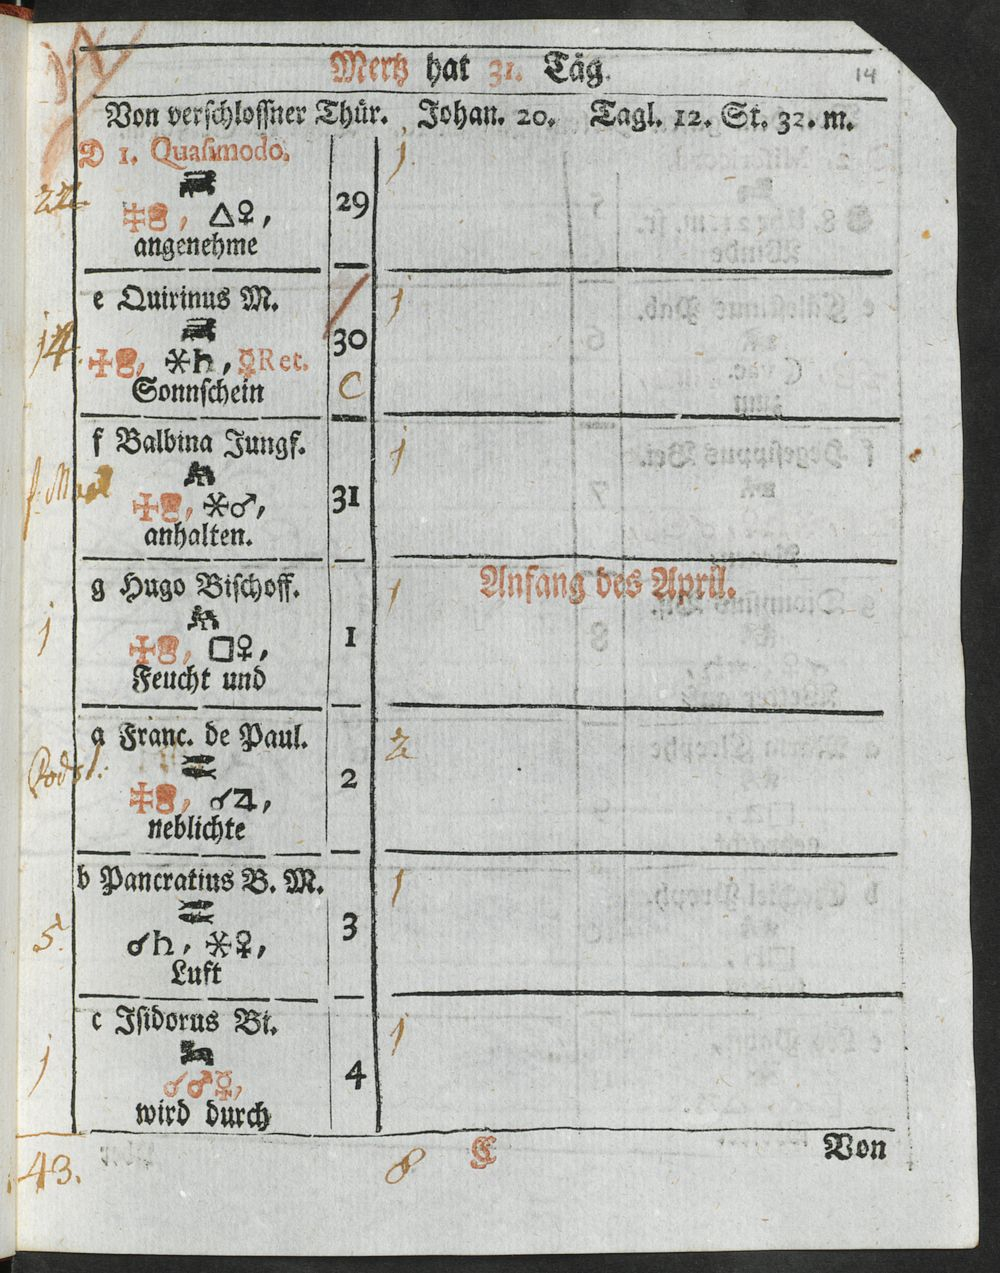 Mertz hat 31. Täg.
14
Von verschlossner Thür. Johan. 20. Tagl. 12. St. 32. m.
D 1. Quasimodo.
1
22
△♀,
29
angenehme
e Quirinus M.
1
14.
⚹♄, ☿Ret.
30
Sonnschein
C
f Balbina Jungf.
1
⚹♂,
31
anhalten.
g Hugo Bischoff.
Anfang des April.
1
1
□♀,
1
Feucht und
a Franc. de Paul.
2
☌♃,
2
neblichte
b Pancratius B. M.
1
5.
☌♄, ⚹♀,
3
Luft
c Isidorus Bi.
1
1
☌♂☿,
4
wird durch
43.
8
C
Von